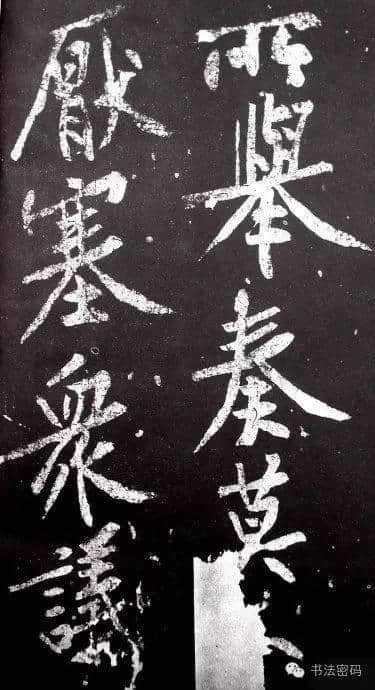 所舉奏莫
厭塞衆議
书法密码